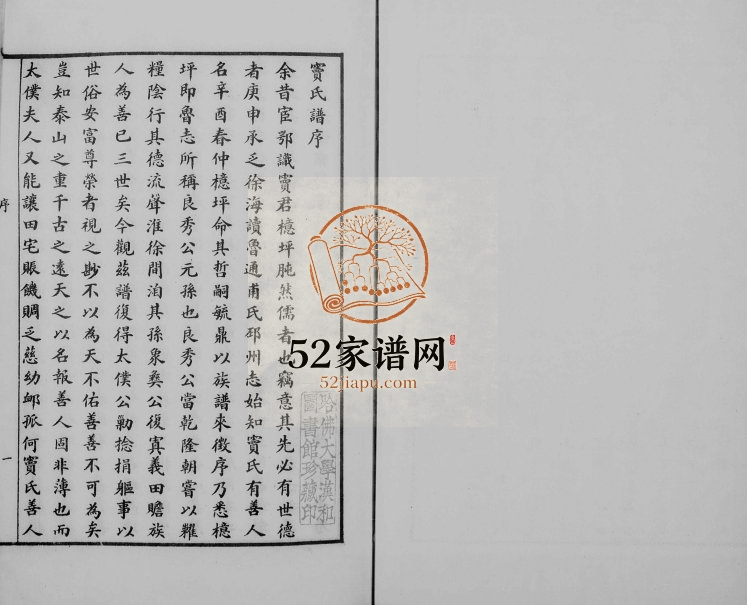 竇氏譜序
余昔宦鄂識竇君檍坪肫然儒者也竊意其先必有世德
者庚申承乏徐海讀魯通甫氏邳州志始知竇氏有善人
名辛酉春仲檍坪命其哲嗣毓鼎以族譜來徵序乃悉檍
坪即魯志所稱良秀公元孫也良秀公當乾隆朝嘗以糶
糧陰行其德流聲淮徐間洎其孫象彝公復寘義田贍族
人為善已三世矣今觀茲譜復得太僕公勦捻捐軀事以
世俗安富尊榮者視之尠不以為天不佑善善不可為矣
豈知泰山之重千古之遠天之以名報善人固非薄也而
太僕夫人又能讓田宅賑饑賙乏慈幼邮孤何竇氏善人
序
一
52家谱网
52jiapu.com
哈佛大學漢和
圖書館珍藏印